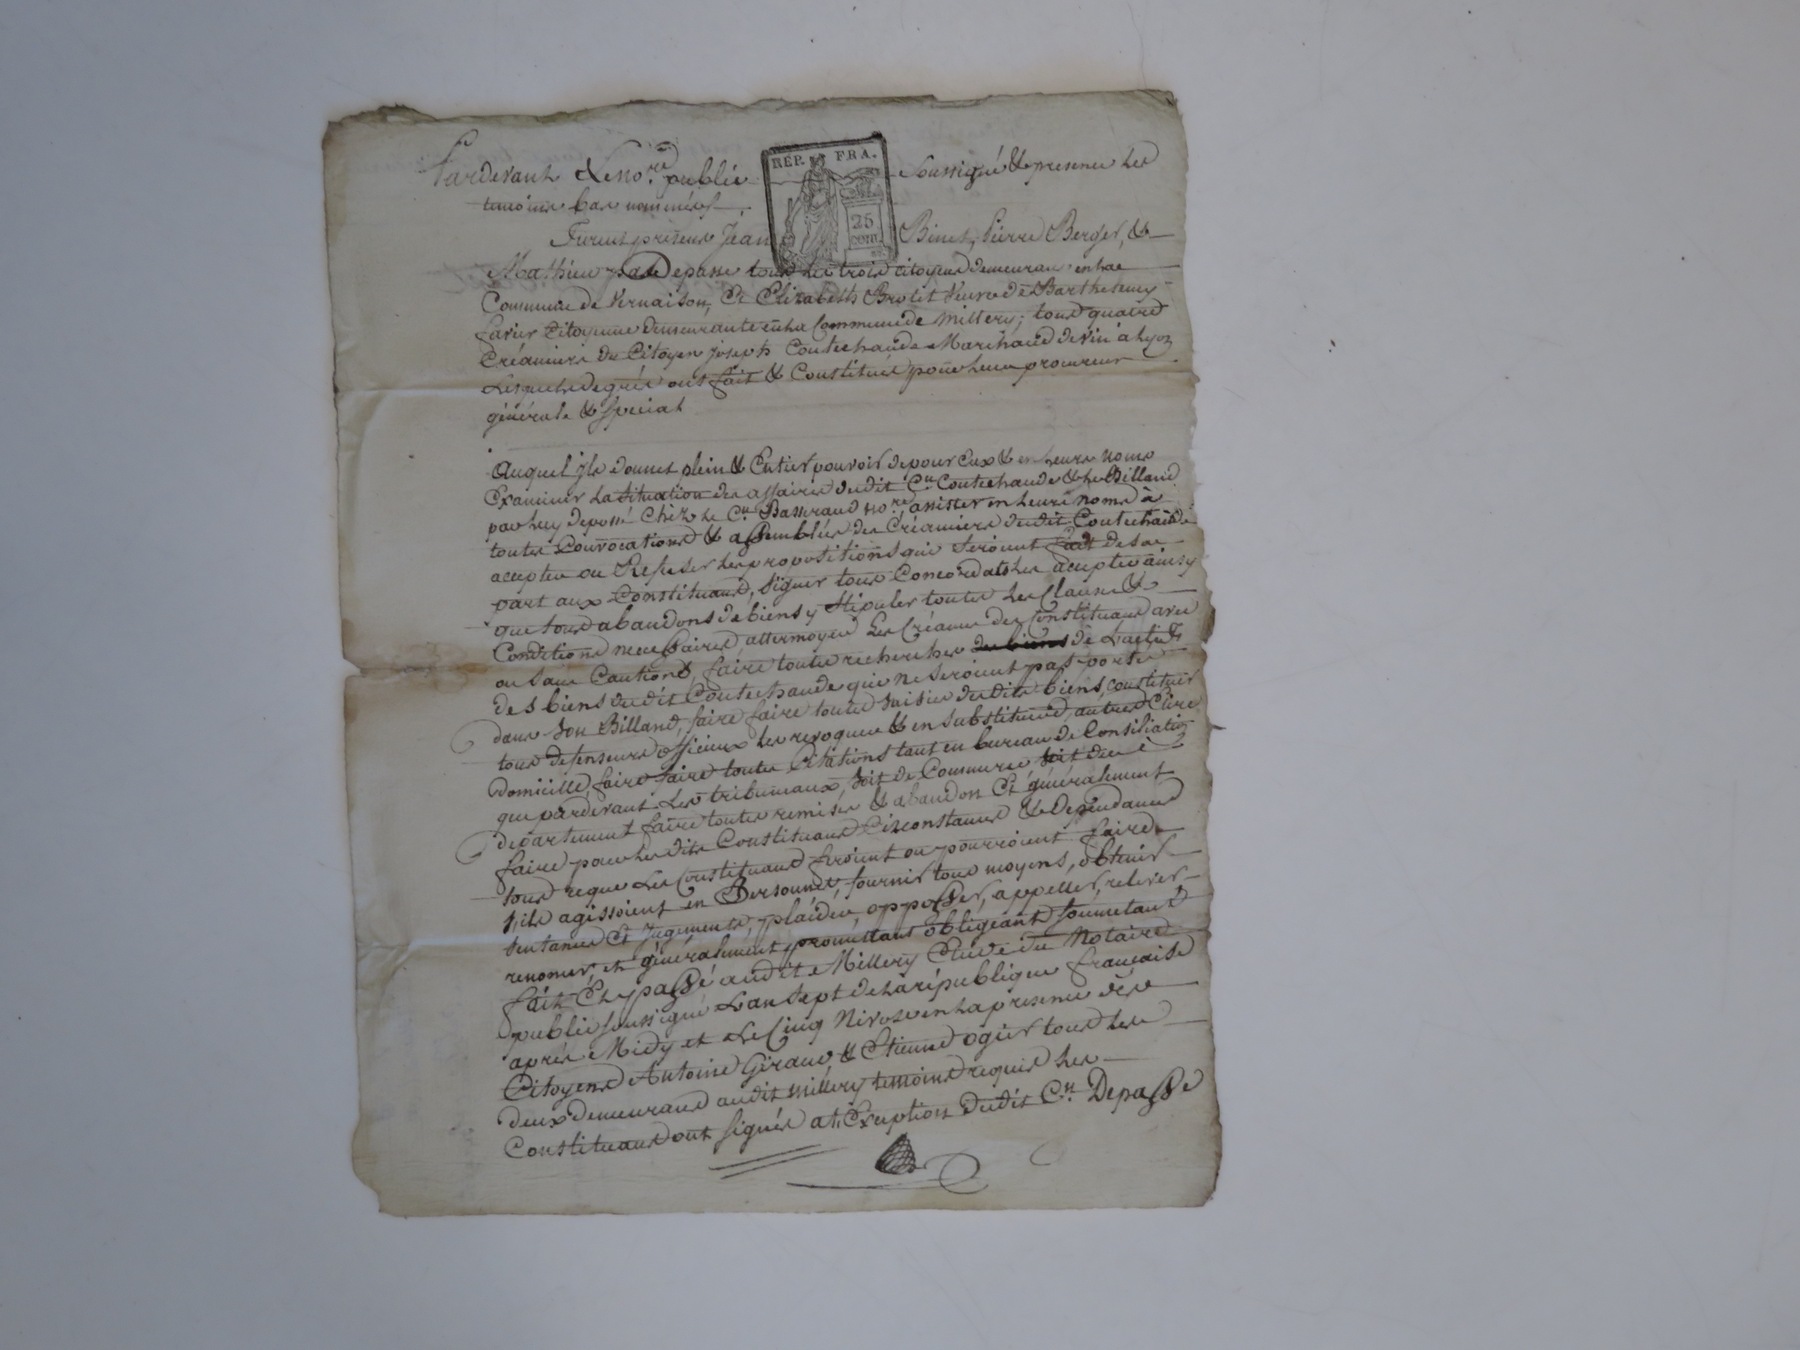 Pardevant Le no.re public soussigné & presence des
temoins bas nommés
REP. FRA.
25
cent.
Furent présens Jean Binet, Pierre Berger, &
Mathieu Depasse tous les trois citoyens demeurans en la
Commune de Vernaison, Et Elizabeth Brotet Veuve de Barthelemy
favier Citoyenne demeurante en la Commune de Millery; tous quatre
Créanciers du Citoyen joseph Coutechaude Marchand de vin à Lyon
Lesquels de gré ont fait & Constitué pour leur procureur
générale & spécial
Auquel ils donnet plein & Entier pouvoir de pour Eux & en leurs noms
Examiner la situation des affaires dudit C.n Coutechaude & le Billand
par luy deposé Chez le C.n Basseraud no.re, assister en leurs noms à
toutes Convocations & assemblées des Créanciers dudit Coutechaude
accepter ou Refuser les propositions qui seroient fait de sa
part aux Constituans, signer tous Concordats les accepter ainsy
que tous abandons de biens y stipuler toutes les Clauses &
Conditions necessaires, attermoyer Les Créances des Constituans avec
ou sans Cautions, faire toutes recherches des biens de L'actif
des biens dudit Coutechaude qui ne seroient pas porté
dans son Billand, faire faire toutes saisies desdits biens, constituir
tous defenseurs officieux les revoquer & en substituer d'autres Elire
domicille, faire faire toutes Citations tant en bureau de Consiliation
que pardevant Les tribunaux, soit de Commerce soit du
departement faire toutes remises & abandon Et généralement
faire pour les dits Constituans Circonstances & Dependances
tous ceque Les Constituans feroient ou pourroient faire
s'ils agissoient en Personnes, fournir tous moyens, obtenir
sentances Et Jugements, plaider, opposer, appeller, relever
renoncer, et généralement promettans obligeant soumetant
fait Et passé audit Millery Etude du Notaire
public soussigné L'an sept de la république française
après Midy et Le Cinq Nivose en la presence des
Citoyens Antoine Giraud, & Etienne ogier tous les
deux demeurans audit Millery temoins requis les
Constituans ont signés a L'Exception dudit C.n Depasse